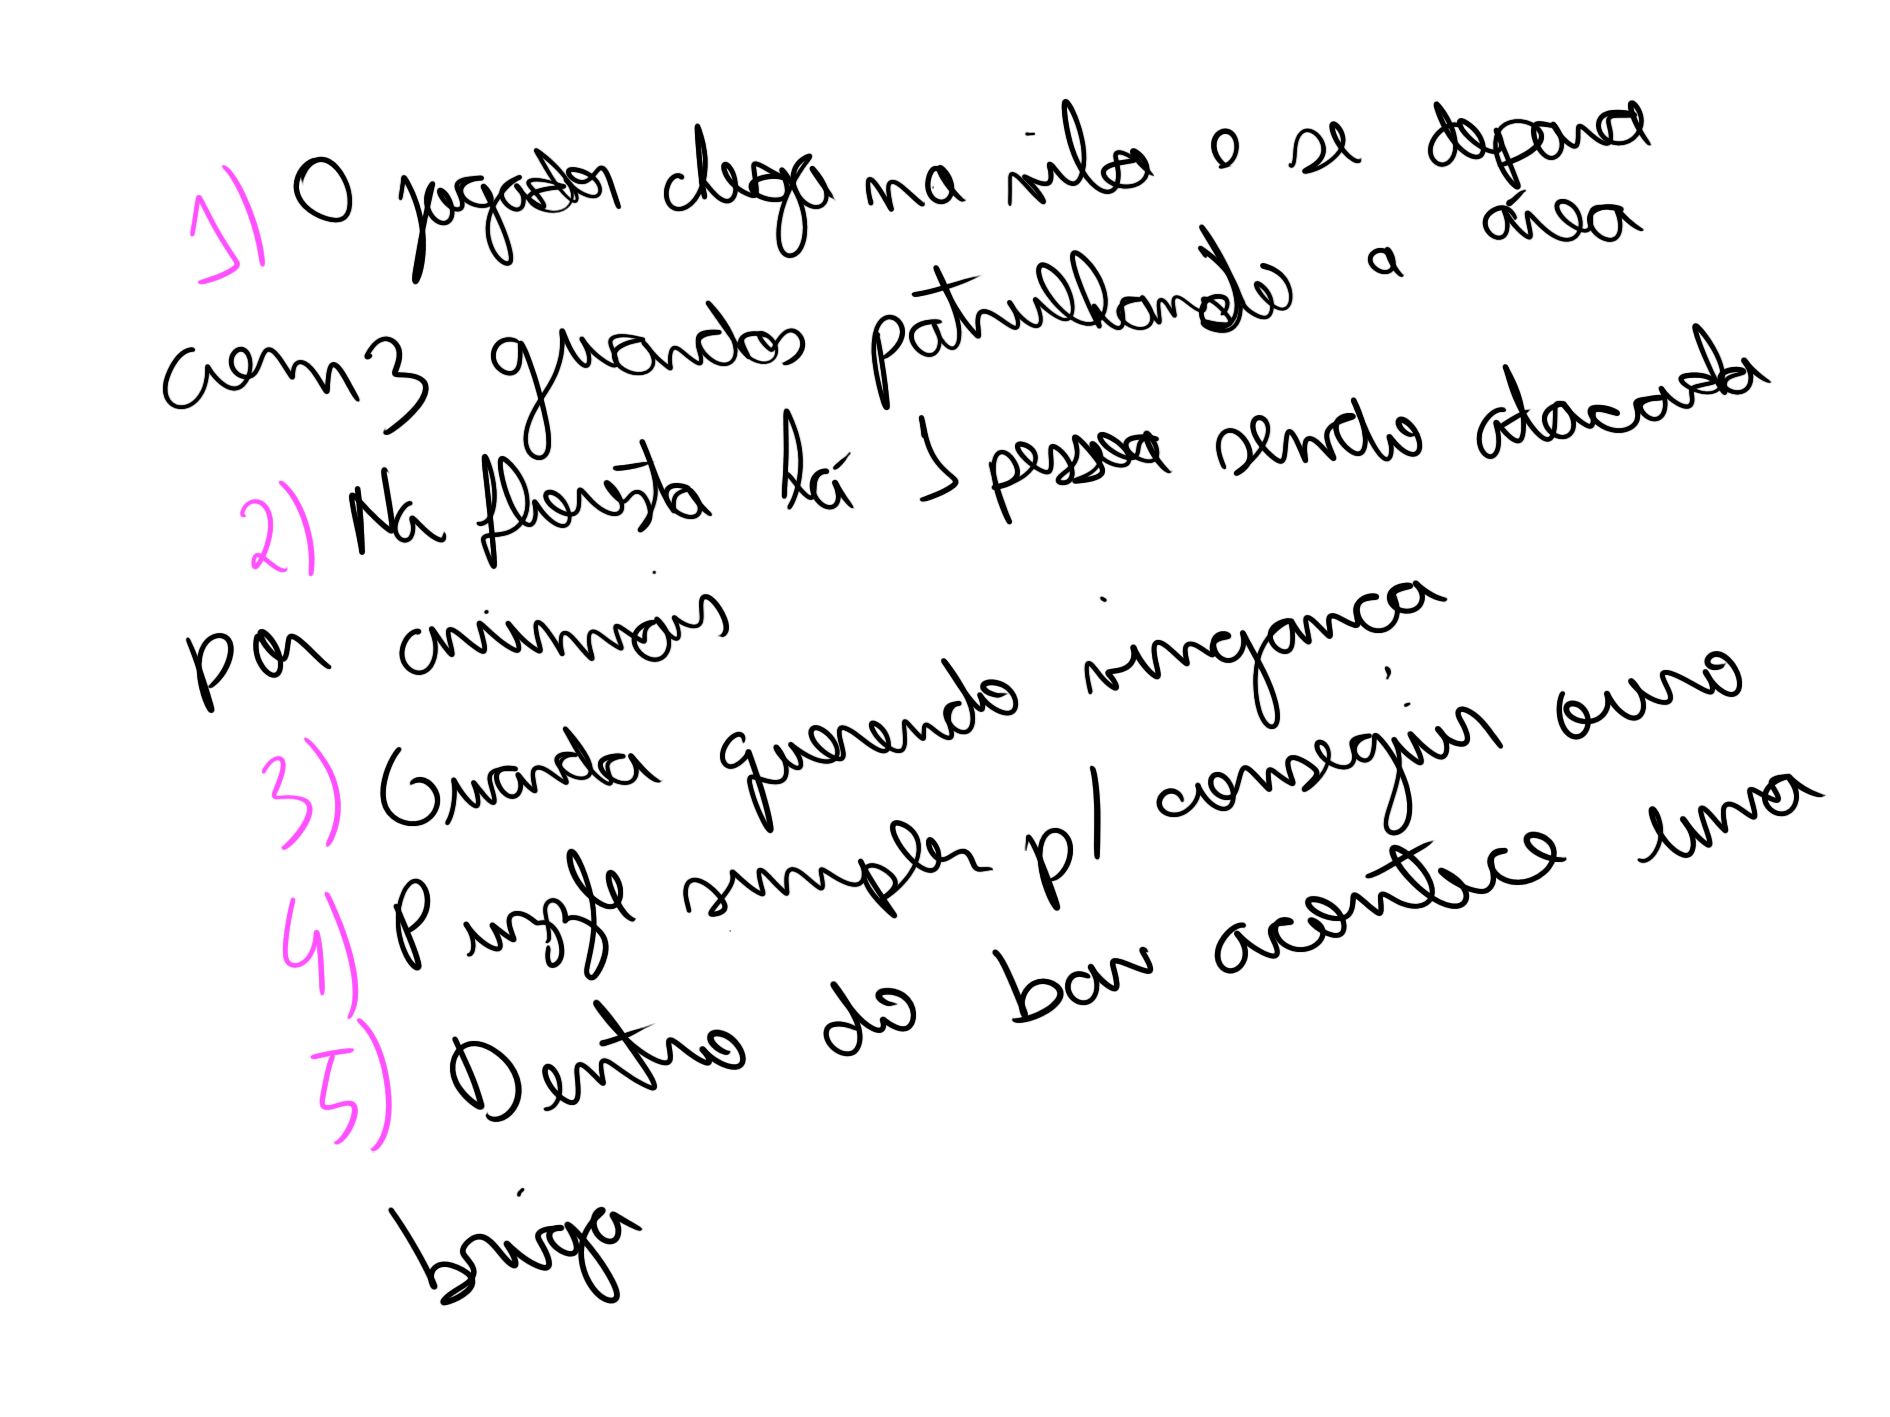 1) O jogador chega na vila e se depara
com 3 guardas patrulhando a área
2) Na floresta há 1 pessoa sendo atacada
por animais
3) Guarda querendo vingança
4) Puzzle simples p/ conseguir ouro
5) Dentro do bar acontece uma
briga